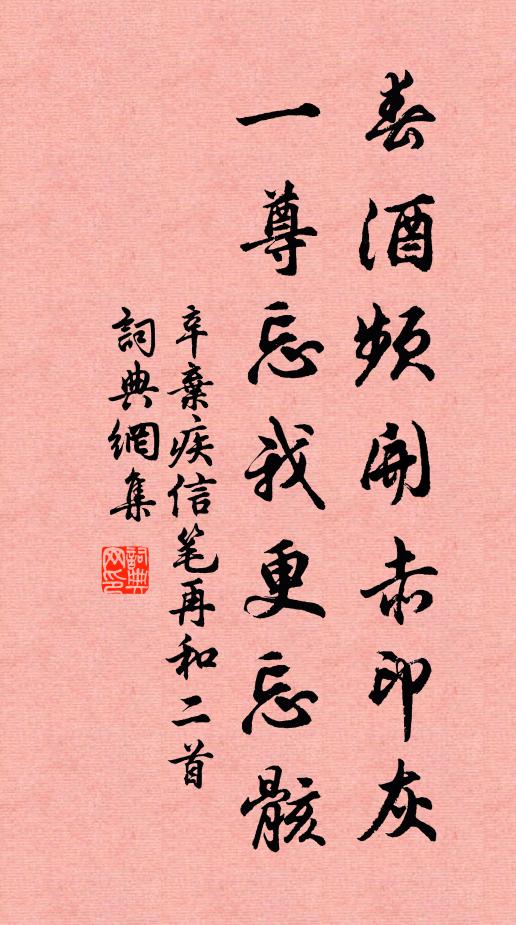 春酒频開赤印灰
一尊忘我更忘骸
辛棄疾信笔再和二首
詞典網集
詞典网印